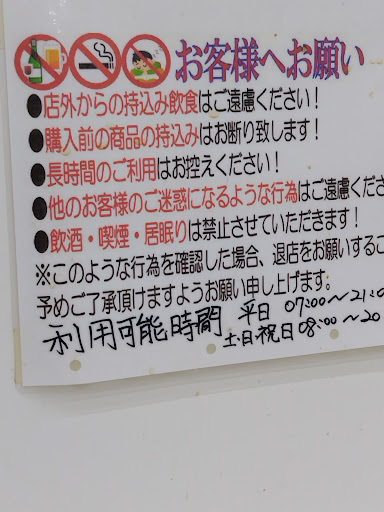 お客様へお願い
●店外からの持込み飲食はご遠慮ください！
●購入前の商品の持込みはお断り致します！
●長時間のご利用はお控えください！
●他のお客様のご迷惑になるような行為はご遠慮くださ
●飲酒・喫煙・居眠りは禁止させていただきます！
※このような行為を確認した場合、退店をお願いするこ
予めご了承頂けますようお願い申し上げます。
利用可能時間 平日 07:00～21:0
土・日・祝日 08:00～20